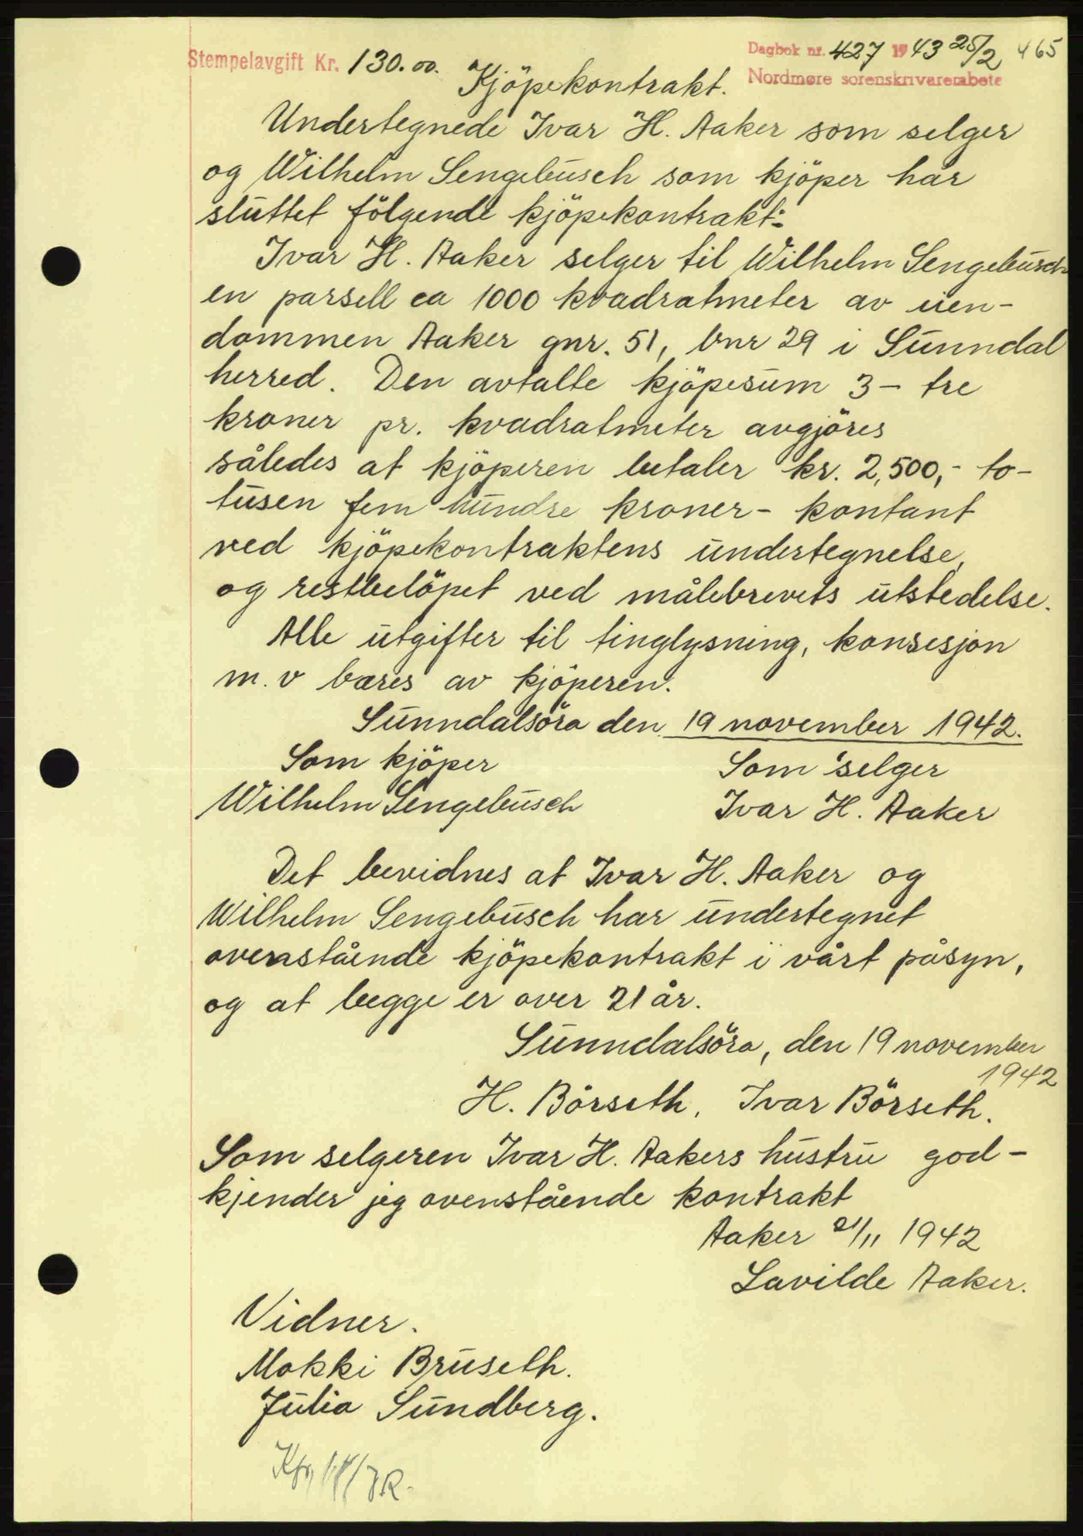 Stempelavgift Kr. 130.00.
Dagbok nr. 427 1943 25/2 465
Nordmøre sorenskrivarembete
Kjöpekontrakt.
Undertegnede Ivar H. Aaker som selger
og Wilhelm Sengebusch som kjöper har
sluttet fölgende kjöpekontrakt:
Ivar H. Aaker selger til Wilhelm Sengebusch
en parsell ca 1000 kvadratmeter av eien-
dommen Aaker gnr. 51, bnr 29 i Sunndal
herred. Den avtalte kjöpesum 3 - tre
kroner pr. kvadratmeter avgjöres
således at kjöperen betaler kr. 2,500,- to-
tusen fem hundre kroner - kontant
ved kjöpekontraktens undertegnelse,
og restbelöpet ved målebrevets utstedelse.
Alle utgifter til tinglysning, konsesjon
m.v bæres av kjöperen.
Sunndalsöra den 19 november 1942.
Som kjöper Som selger
Wilhelm Sengebusch Ivar H. Aaker
Det bevidnes at Ivar H. Aaker og
Wilhelm Sengebusch har undertegnet
ovenstående kjöpekontrakt i vårt påsyn,
og at begge er over 21 år.
Sunndalsöra, den 19 november
1942
H. Börseth, Ivar Börseth.
Som selgeren Ivar H. Aakers hustru god-
kjender jeg ovenstående kontrakt
Aaker 21/11 1942
Lavilde Aaker.
Vidner.
Mokki Bruseth.
Julia Sundberg.